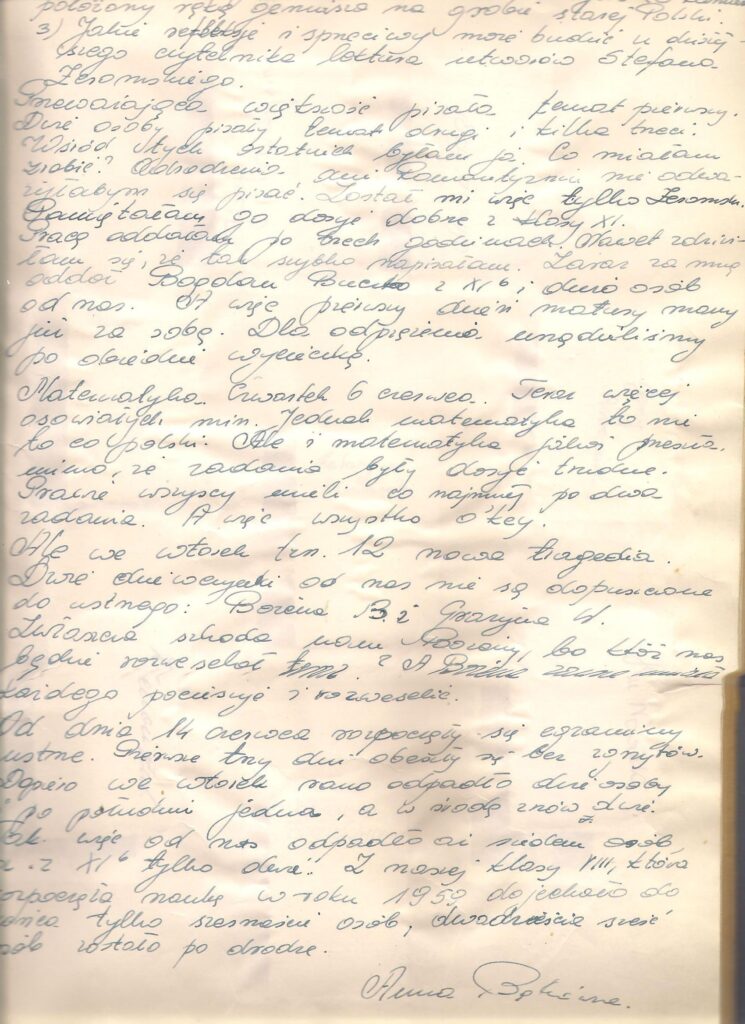 położony ręką geniusza na grobie starej Polski.
3) Jakie refleksje i sprzeciwy może budzić u dzisiej-
szego czytelnika lektura utworów Stefana
Żeromskiego.
Przeważająca większość pisała temat pierwszy.
Dwie osoby pisały temat drugi i kilka trzeci.
Wśród tych ostatnich byłam ja. Co miałam
zrobić? Odrodzenia ani Romantyzmu nie odwa-
żyłabym się pisać. Został mi więc tylko Żeromski.
Pamiętałam go dosyć dobrze z klasy XI.
Pracę oddałam po trzech godzinach. Nawet zdziwi-
łam się, że tak szybko napisałam. Zaraz za mną
oddał Bogdan z XI b i dwie osób
od nas. A więc pierwszy dzień matury mamy
już za sobą. Dla odprężenia urządziliśmy
po obiedzie wycieczkę.
Matematyka. Czwartek 6 czerwca. Teraz więcej
osowiałych min. Jednak matematyka to nie
to co polski. Ale i matematyka jakoś przeszła,
mimo, że zadania były dosyć trudne.
Prawie wszyscy mieli co najmniej po dwa
zadania. A więc wszystko o'key.
Ale we wtorek tzn. 12 nowa tragedia.
Dwie dziewczynki od nas nie są dopuszczone
do ustnego: Bożena B. i Grażyna W.
Zwłaszcza szkoda nam Bożeny, bo któż nas
będzie rozweselał ? A zawsze umiała
każdego pocieszyć i rozweselić.
Od dnia 14 czerwca rozpoczęły się egzaminy
ustne. Pierwsze trzy dni obeszły się bez zgrzytów.
Dopiero we wtorek rano odpadło dwie osoby
i po południu jedna, a w środę znów dwie.
Tak więc od nas odpadło aż siedem osób
a z XI b tylko dwie. Z naszej klasy VIII, która
rozpoczęła naukę w roku 1959 dojechało do
końca tylko szesnaście osób, dwadzieścia sześć
osób zostało po drodze.
Anna